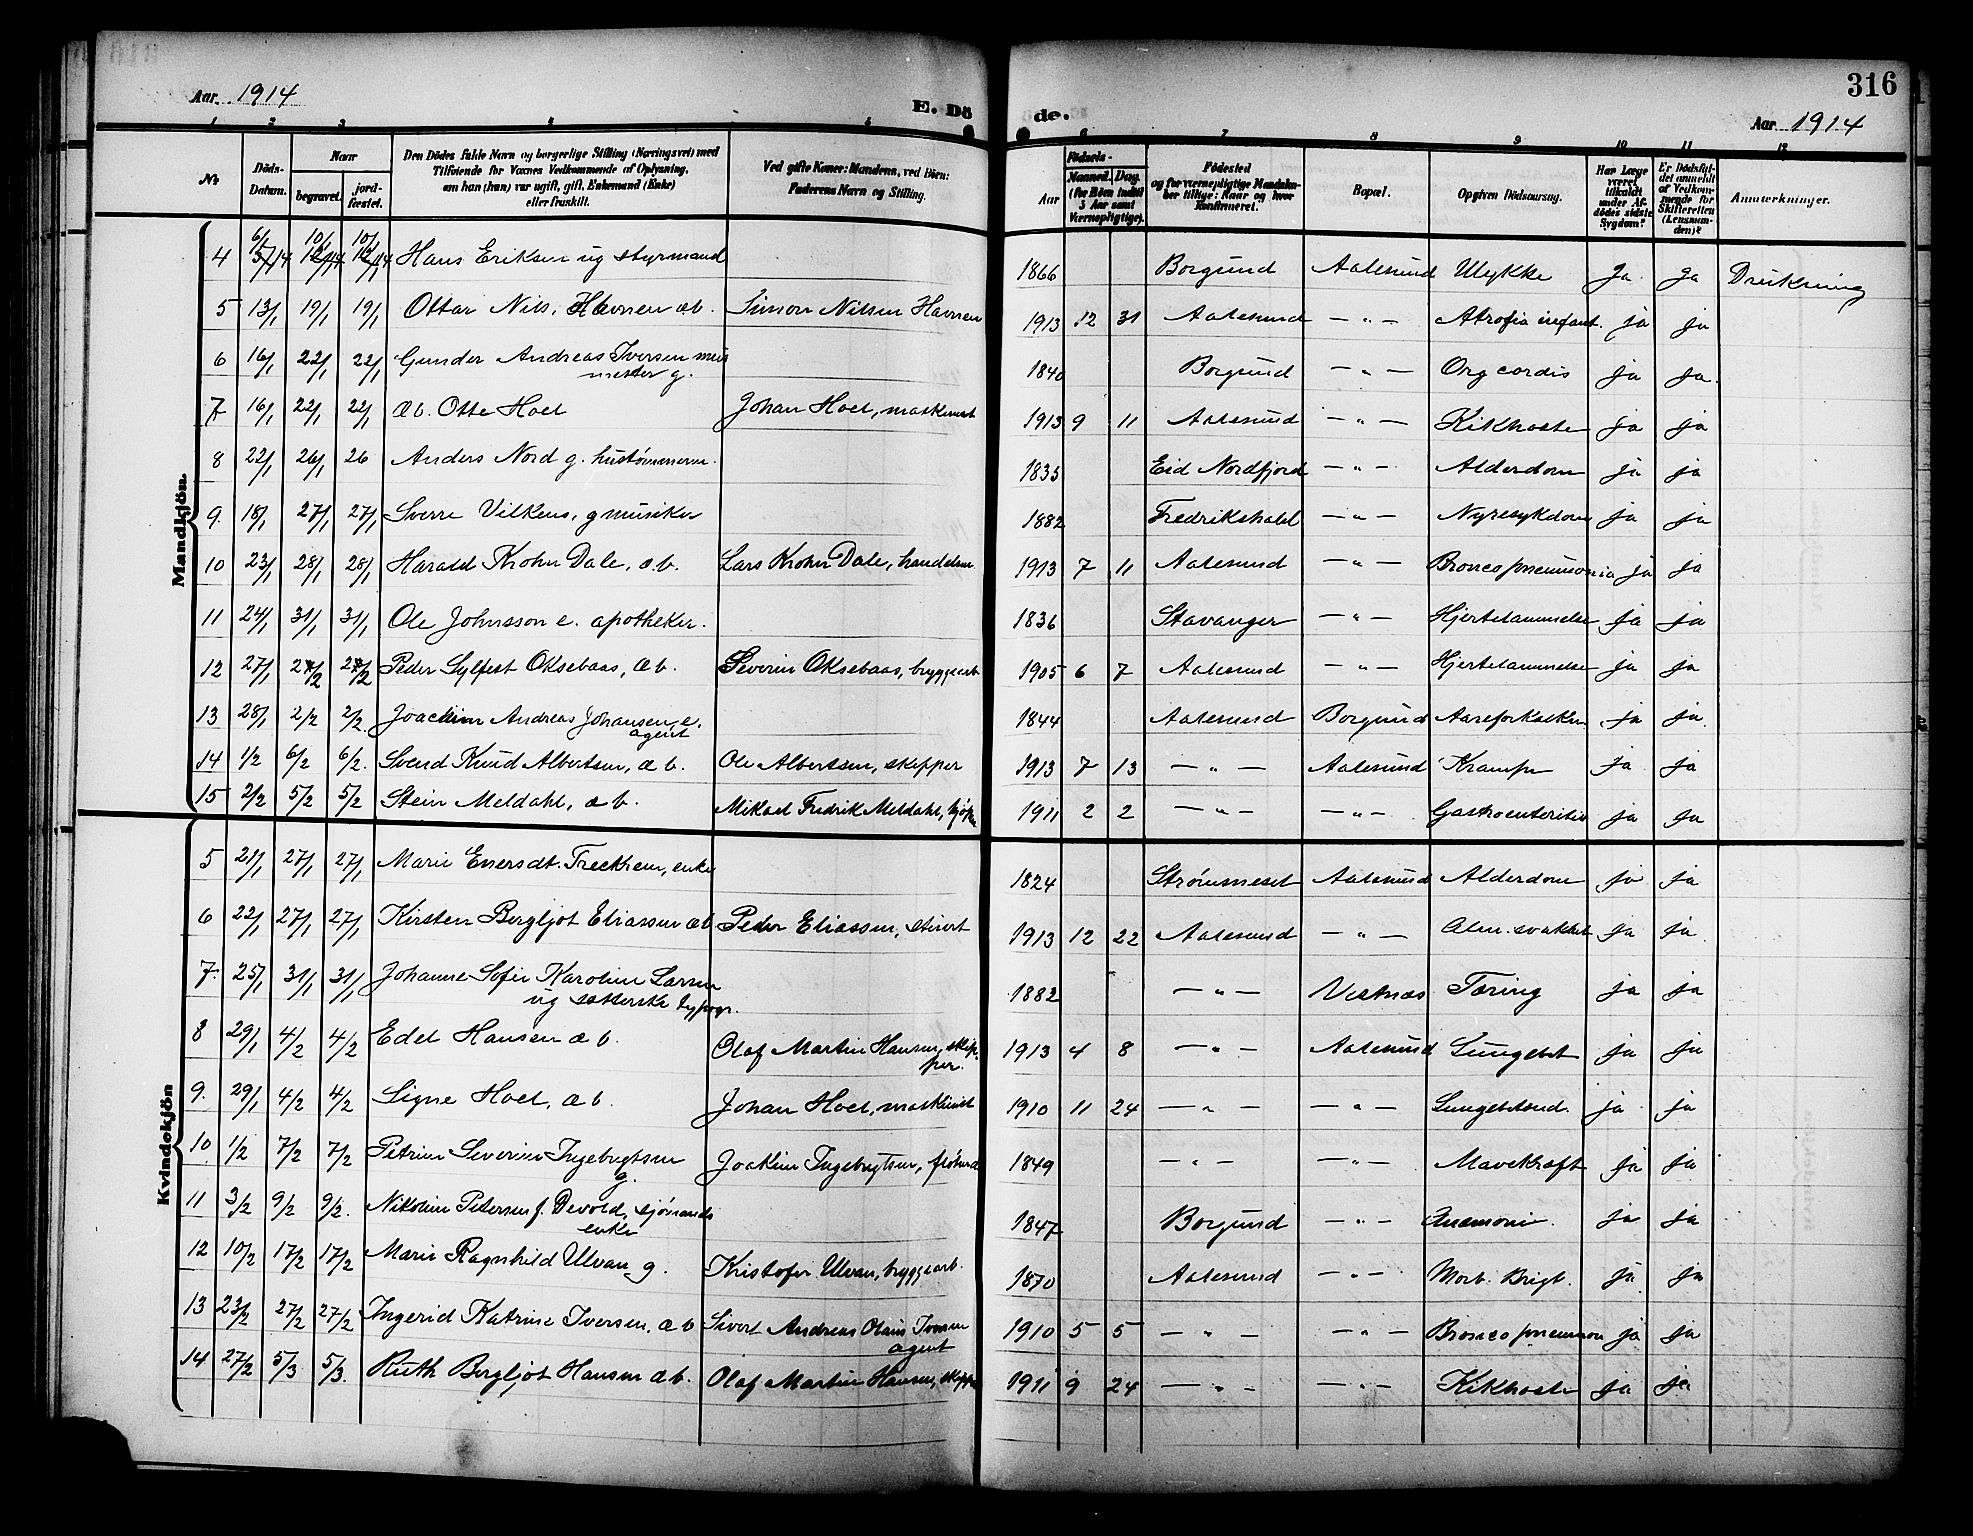 316
Aar 1914 E. Dö de. Aar 1914
1 2 3 4 5 6 7 8 9 10 11 12
No Döds-Datum. Naar begravet. jord-fæstet. Den Dödes fulde Navn og borgerlige Stilling (Næringsvei) med Tilföiende for Voxnes Vedkommende af Oplysning, om han (hun) var ugift, gift, Enkemand (Enke) eller fraskilt. Ved gifte Koner: Mandens, ved Börn: Faderens Navn og Stilling. Födsels- Aar Maaned. Dag. (for Börn indtil 3 Aar samt Værnepligtige). Födested og for værnepligtige Mandskaber tillige: Naar og hvor konfirmeret. Bopæl. Opgiven Dödsaarsag. Har Læge været tilkaldt under Afdödes sidste Sygdom? Er Dödsfaldet anmeldt af Vedkommende for Skifteretten (Lensmanden)? Anmærkninger.
Mandkjön
4 6/1 14 10/1 14 10/1 14 Hans Eriksen ug styrmand 1866 Borgund Aalesund Ulykke Ja ja Drukning
5 13/1 19/1 19/1 Ottar Nils. Havnen æb. Simon Nilsen Havnen 1913 12 31 Aalesund — " — Atrofia infant. ja ja
6 16/1 22/1 22/1 Gunder Andreas Iversen mur
mester g. 1840 Borgund — " — Org cordis ja ja.
7 16/1 22/1 22/1 æb. Otte Hoel Johan Hoel, maskinist 1913 9 11 Aalesund — " — Kikhoste ja ja
8 22/1 26/1 26 Anders Nord g. hustømmerm. 1835 Eid Nordfjord — " — Alderdom ja ja
9. 18/1 27/1 27/1 Sverre Vilkens, g musiker 1882 Fredrikshald — " — Nyresykdom ja ja
10 23/1 28/1 28/1 Harald Krohn Dale, æ.b. Lars Krohn Dale, handelsm. 1913 7 11 Aalesund — " — Broncopneumonia ja ja
11 24/1 31/1 31/1 Ole Johnsson e. apotheker. 1836 Stavanger — " — Hjertelammelse ja ja
12 27/1 2/2 2/2 Peder Sylfest Oksebaas, æb. Severin Oksebaas, bryggearb 1905 6 7 Aalesund — " — Hjertelammelse ja ja
13 28/1 2/2 2/2. Joachim Andreas Johansen, e.
agent 1844 Aalesund Borgund Aareforkalkn ja ja.
14 1/2 6/2 6/2. Svend Knud Albertsen, æ b. Ole Albertsen, skipper 1913 7 13 — " — Aalesund Krampe ja ja
15 2/2 5/2 5/2 Stein Meldahl, æ b. Mikael Fredrik Meldahl, kjøpm 1911 2 2 — " — — " — Gastroenteritis ja ja
Kvindekjön
5 21/1 27/1 27/1 Marie Enersdt. Treekrem, enke 1824 Strømmeset Aalesund Alderdom ja ja
6 22/1 27/1 27/1 Kirsten Bergljot Eliassen æb Peder Eliassen, stuert 1913 12 22 Aalesund — " — Alm. svakhet ja ja.
7. 25/1 31/1 31/1 Johanne Sofie Karoline Larsen
ug sætterske typogr. 1882 — " — Vestnæs Tæring ja ja
8 29/1 4/2 4/2 Edel Hansen æ b. Olaf Martin Hansen, skip-
per. 1913 4 8 — " — Aalesund Lungebet ja ja
9. 29/1 4/2 4/2 Signe Hoel, æ b. Johan Hoel, maskinist 1910 11 24 — " — — " — Lungebetænd. ja ja
10 1/2 7/2 7/2 Petrine Severine Ingebrigtsen
g. Joakim Ingebrigtsen, 1849 — " — — " — Mavekræft ja ja
11 3/2 9/2 9/2. Nikoline Petersen f. Devold, sjømands
enke 1847 Borgund — " — Pneumoni. ja ja
12 10/2 17/2 17/2 Marie Ragnhild Ulvan g. Kristofer Ulvan, bryggearb. 1870 Aalesund — " — Morb. Brigt. ja ja
13 23/2 27/2 27/2 Ingerid Katrine Iversen, æ b Sivert Andreas Olaus Iversen
agent 1910 5 5 — " — — " — Broncopneumon ja ja
14 27/2 5/3 5/3. Ruth Bergljot Hansen æb. Olaf Martin Hansen, skipper 1911 9 24 — " — — " — Kikhoste ja ja